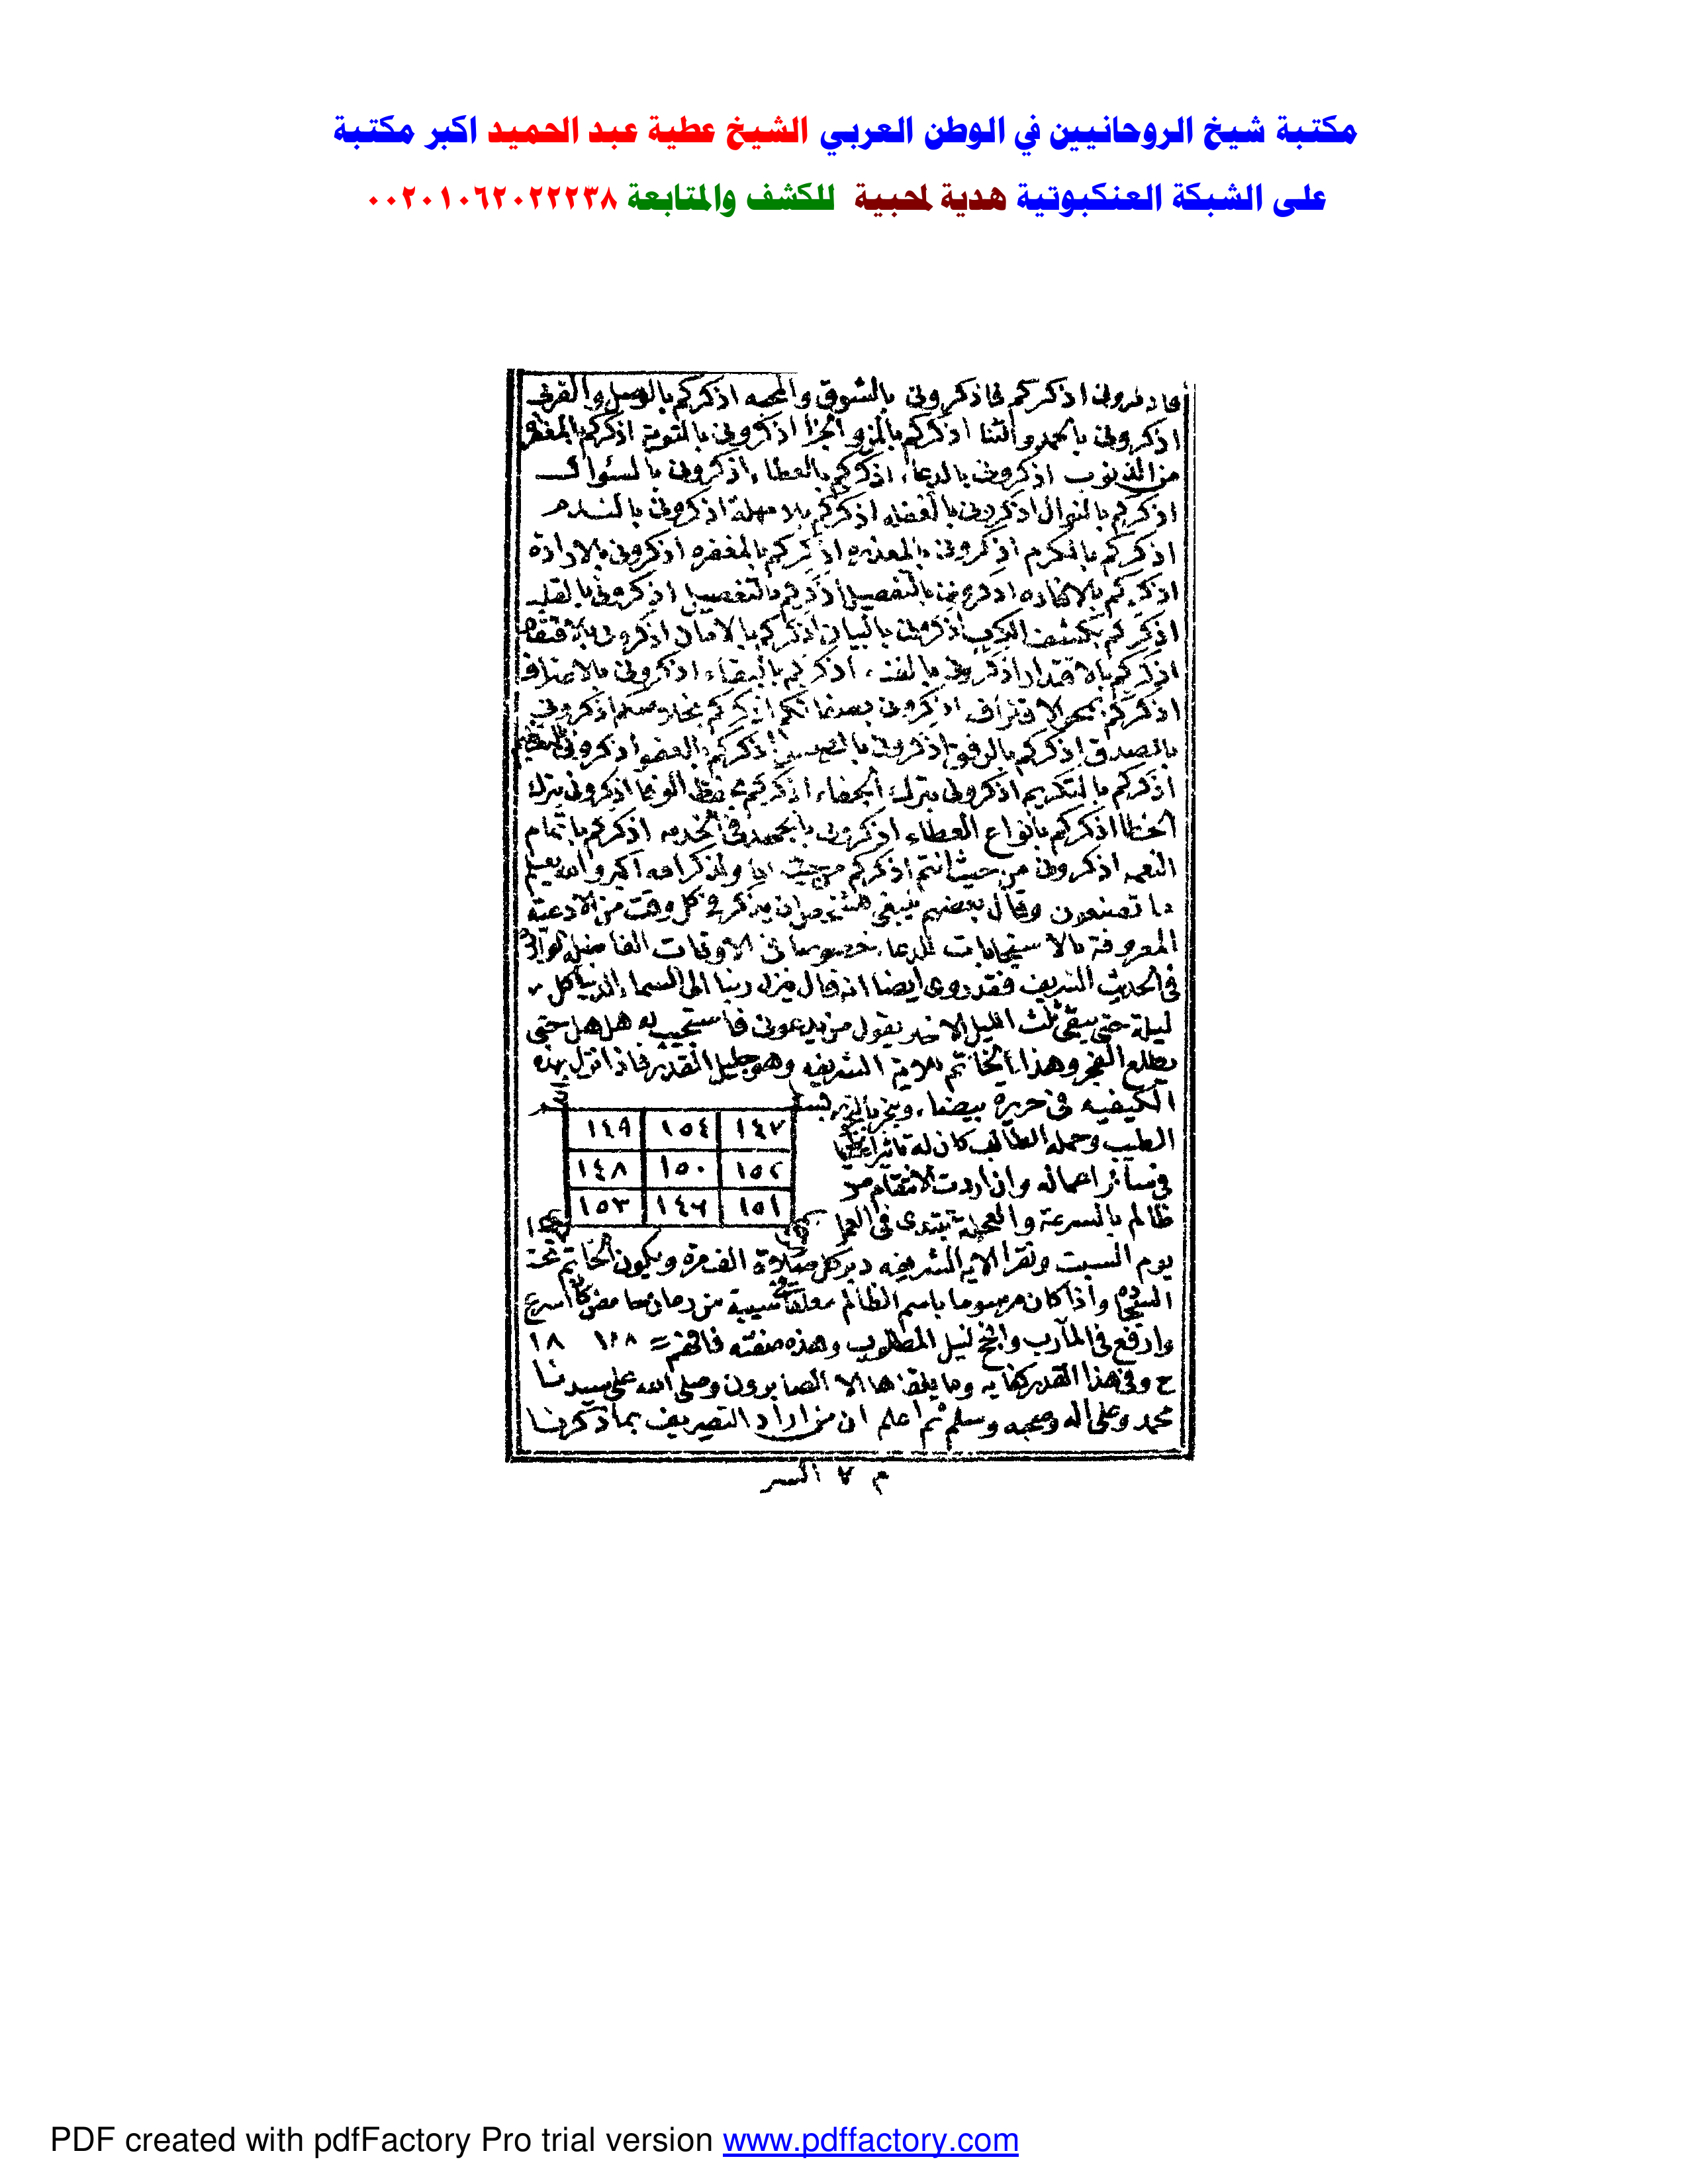 مكتبة شيخ الروحانيين في الوطن العربي الشيخ عطية عبد الحميد اكبر مكتبة
على الشبكة العنكبوتية هدية لمحبية للكشف والمتابعة ٠٠٢٠١٠٦٢٠٢٢٢٣٨
اذكركم فاذكرونى بالشوق والمحبه اذكركم بالوصل والقربى
اذكرونى بالحمد والثنا اذكركم والجزا اذكرونى بالتوبة اذكركم
من الذنوب اذكرونى بالدعاء اذكركم بالعطاء اذكرونى بالسئوال
اذكركم بالنوال اذكرونى اذكركم بلا مهلة اذكرونى بالندم
اذكركم بالكرم اذكرونى بالمعذره اذكركم بالمغفره اذكرونى بالارادة
اذكركم بالافاده اذكرونى اذكركم بالتفصيل اذكرونى بالقلب
اذكركم بكشف الكرب اذكرونى بالبيان اذكركم بالامان اذكرونى
اذكركم بالاقتدار اذكرونى اذكركم بالبقاء اذكرونى بالاعتراف
اذكركم بمحو الاقتراف اذكرونى اذكركم اذكرونى
بالصدق اذكركم بالرفق اذكرونى اذكركم بالعفو اذكرونى
اذكركم بالتكريم اذكرونى بترك الجفاء اذكركم بحفظ الوفا اذكرونى بترك
الخطا اذكركم بانواع العطاء اذكرونى بالجهد فى الخدمه اذكركم باتمام
النعمه اذكرونى من حيث انتم اذكركم من حيث انا ولذكر الله اكبر والله يعلم
ما تصنعون وقال بعضهم ينبغى ان يذكر فى كل وقت من الادعية
المعروفة بالاستجابات للدعاء خصوصا فى الاوقات الفاضلة
فى الحديث الشريف فقد روى ايضا انه قال ينزل ربنا الى السماء الدنيا كل
ليلة حتى يبقى ثلث الليل الاخير يقول من يدعونى فاستجيب له هل هل حتى
يطلع الفجر وهذا الخاتم للاية الشريفه وهو جليل القدر فاذا نزل بهذه
الكيفيه فى حريرة بيضاء
الطيب وحمله الطالب كان له تاثيرا
فى سائر اعماله وان اردت الانتقام من
ظالم بالسرعة والعجلة تبتدى فى العمل
١٤٧ ١٥٤ ١٤٩
١٥٢ ١٥٠ ١٤٨
١٥١ ١٤٦ ١٥٣
يوم السبت وتقرا الايه الشريفه دبر كل صلاة الف مرة ويكون الخاتم تحت
السجاده واذا كان مرسوما باسم الظالم معلقا من رمان كان اسرع
وارفع فى المآرب وانجح لنيل المطلوب وهذه صفته فافهم = ١٨
ح وفى هذا القدر كفايه وما يلقاها الا الصابرون وصلى الله على سيدنا
محمد وعلى اله وصحبه وسلم ثم اعلم ان من اراد التصريف بما ذكرنا
م ٧ السر
PDF created with pdfFactory Pro trial version www.pdffactory.com